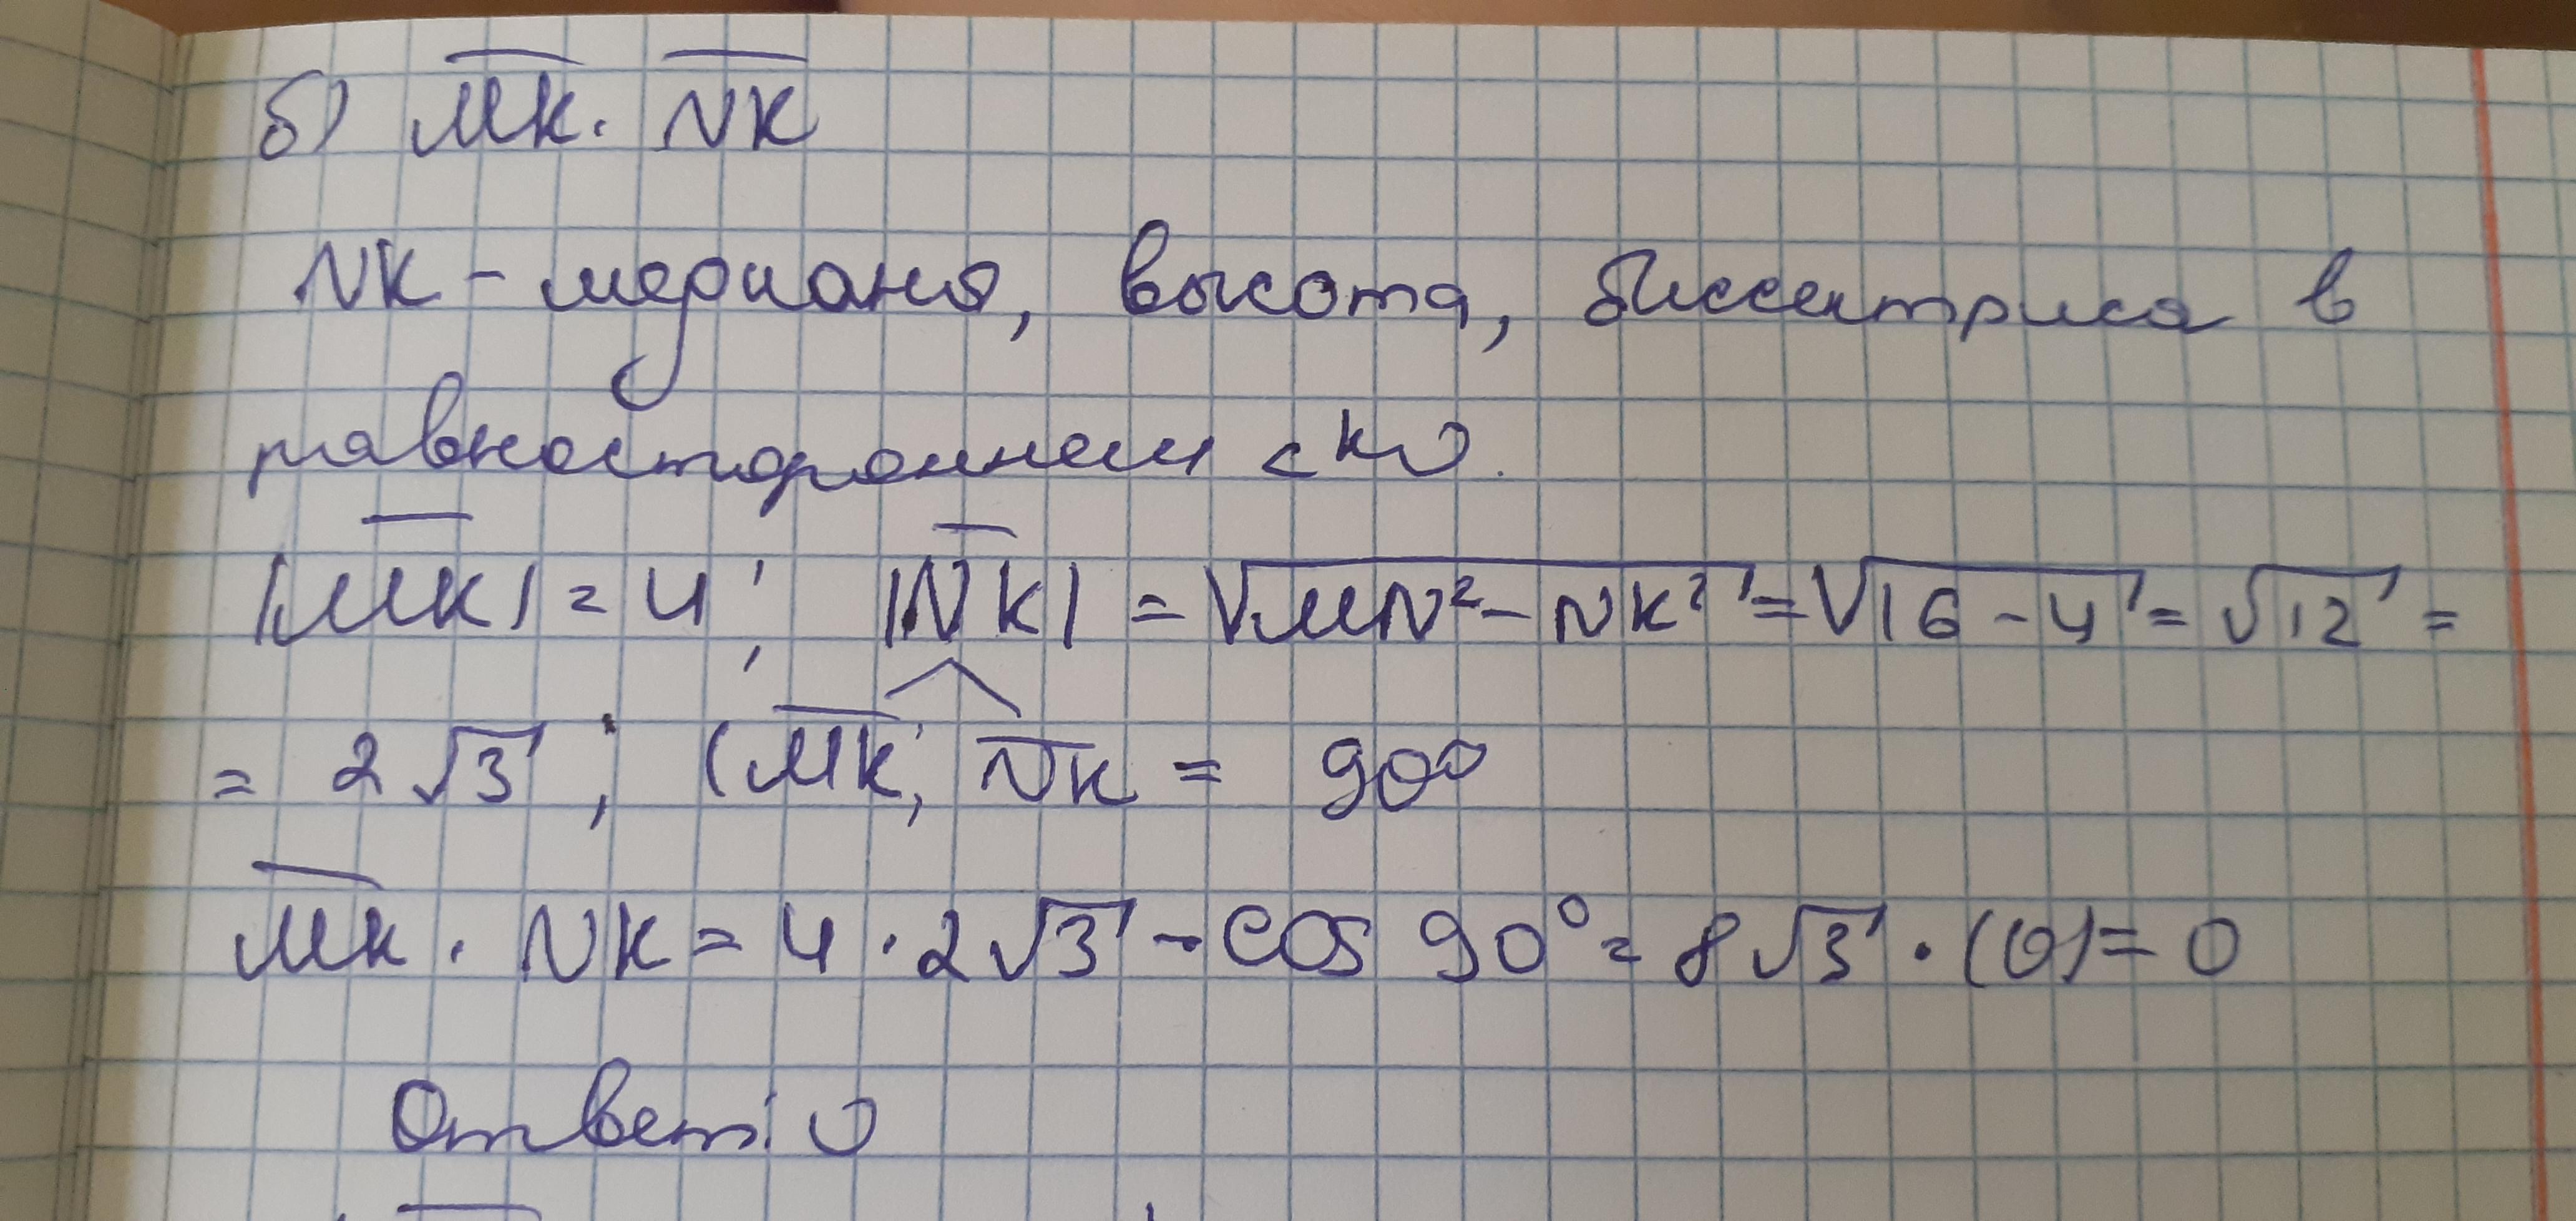 б) MK · NK
NK – медиана, высота, биссектриса в
равностороннем
|MK| = 4; |NK| = √(MN² – NK²) = √(16 – 4) = √12 =
= 2√3; (MK; NK = 90°
MK · NK = 4 · 2√3 · cos 90° = 8√3 · (0) = 0
Ответ: 0